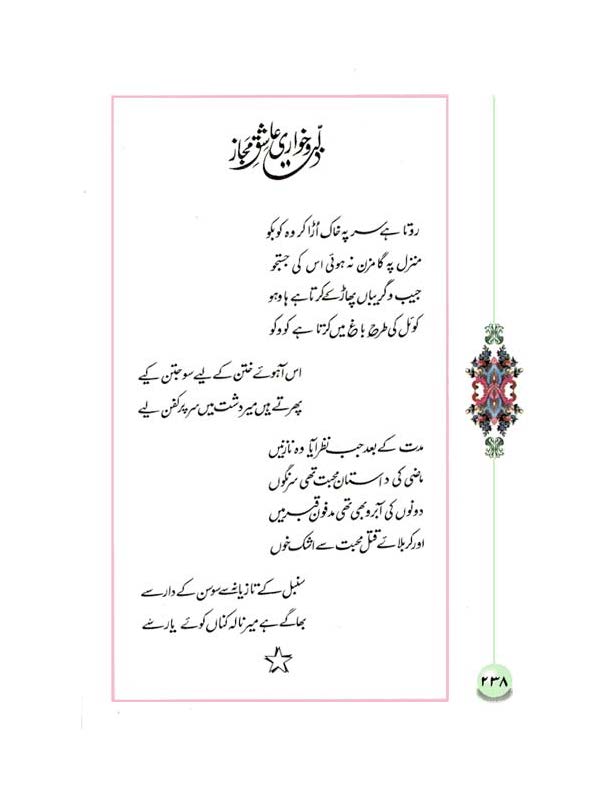 دلبری و خواریِ عاشقِ مجاز
روتا ہے سر پہ خاک اُڑا کر وہ کوبکو
منزل پہ گامزن نہ ہوئی اس کی جستجو
جیب و گریباں پھاڑ کے کرتا ہے ہاوہو
کوئل کی طرح باغ میں کرتا ہے کو و کو
اس آہوئے ختن کے لیے سو جتن کیے
پھرتے ہیں میر دشت میں سر پر کفن لیے
مدت کے بعد جب نظر آیا وہ نازنیں
ماضی کی داستان محبت تھی سرنگوں
دونوں کی آبرو بھی تھی مدفون قبر میں
اور کربلائے قتل محبت سے اشک خوں
سنبل کے تازیانہ سے سوسن کے دار سے
بھاگے ہے میر نالہ کناں کوئے یار سے
۲۳۸